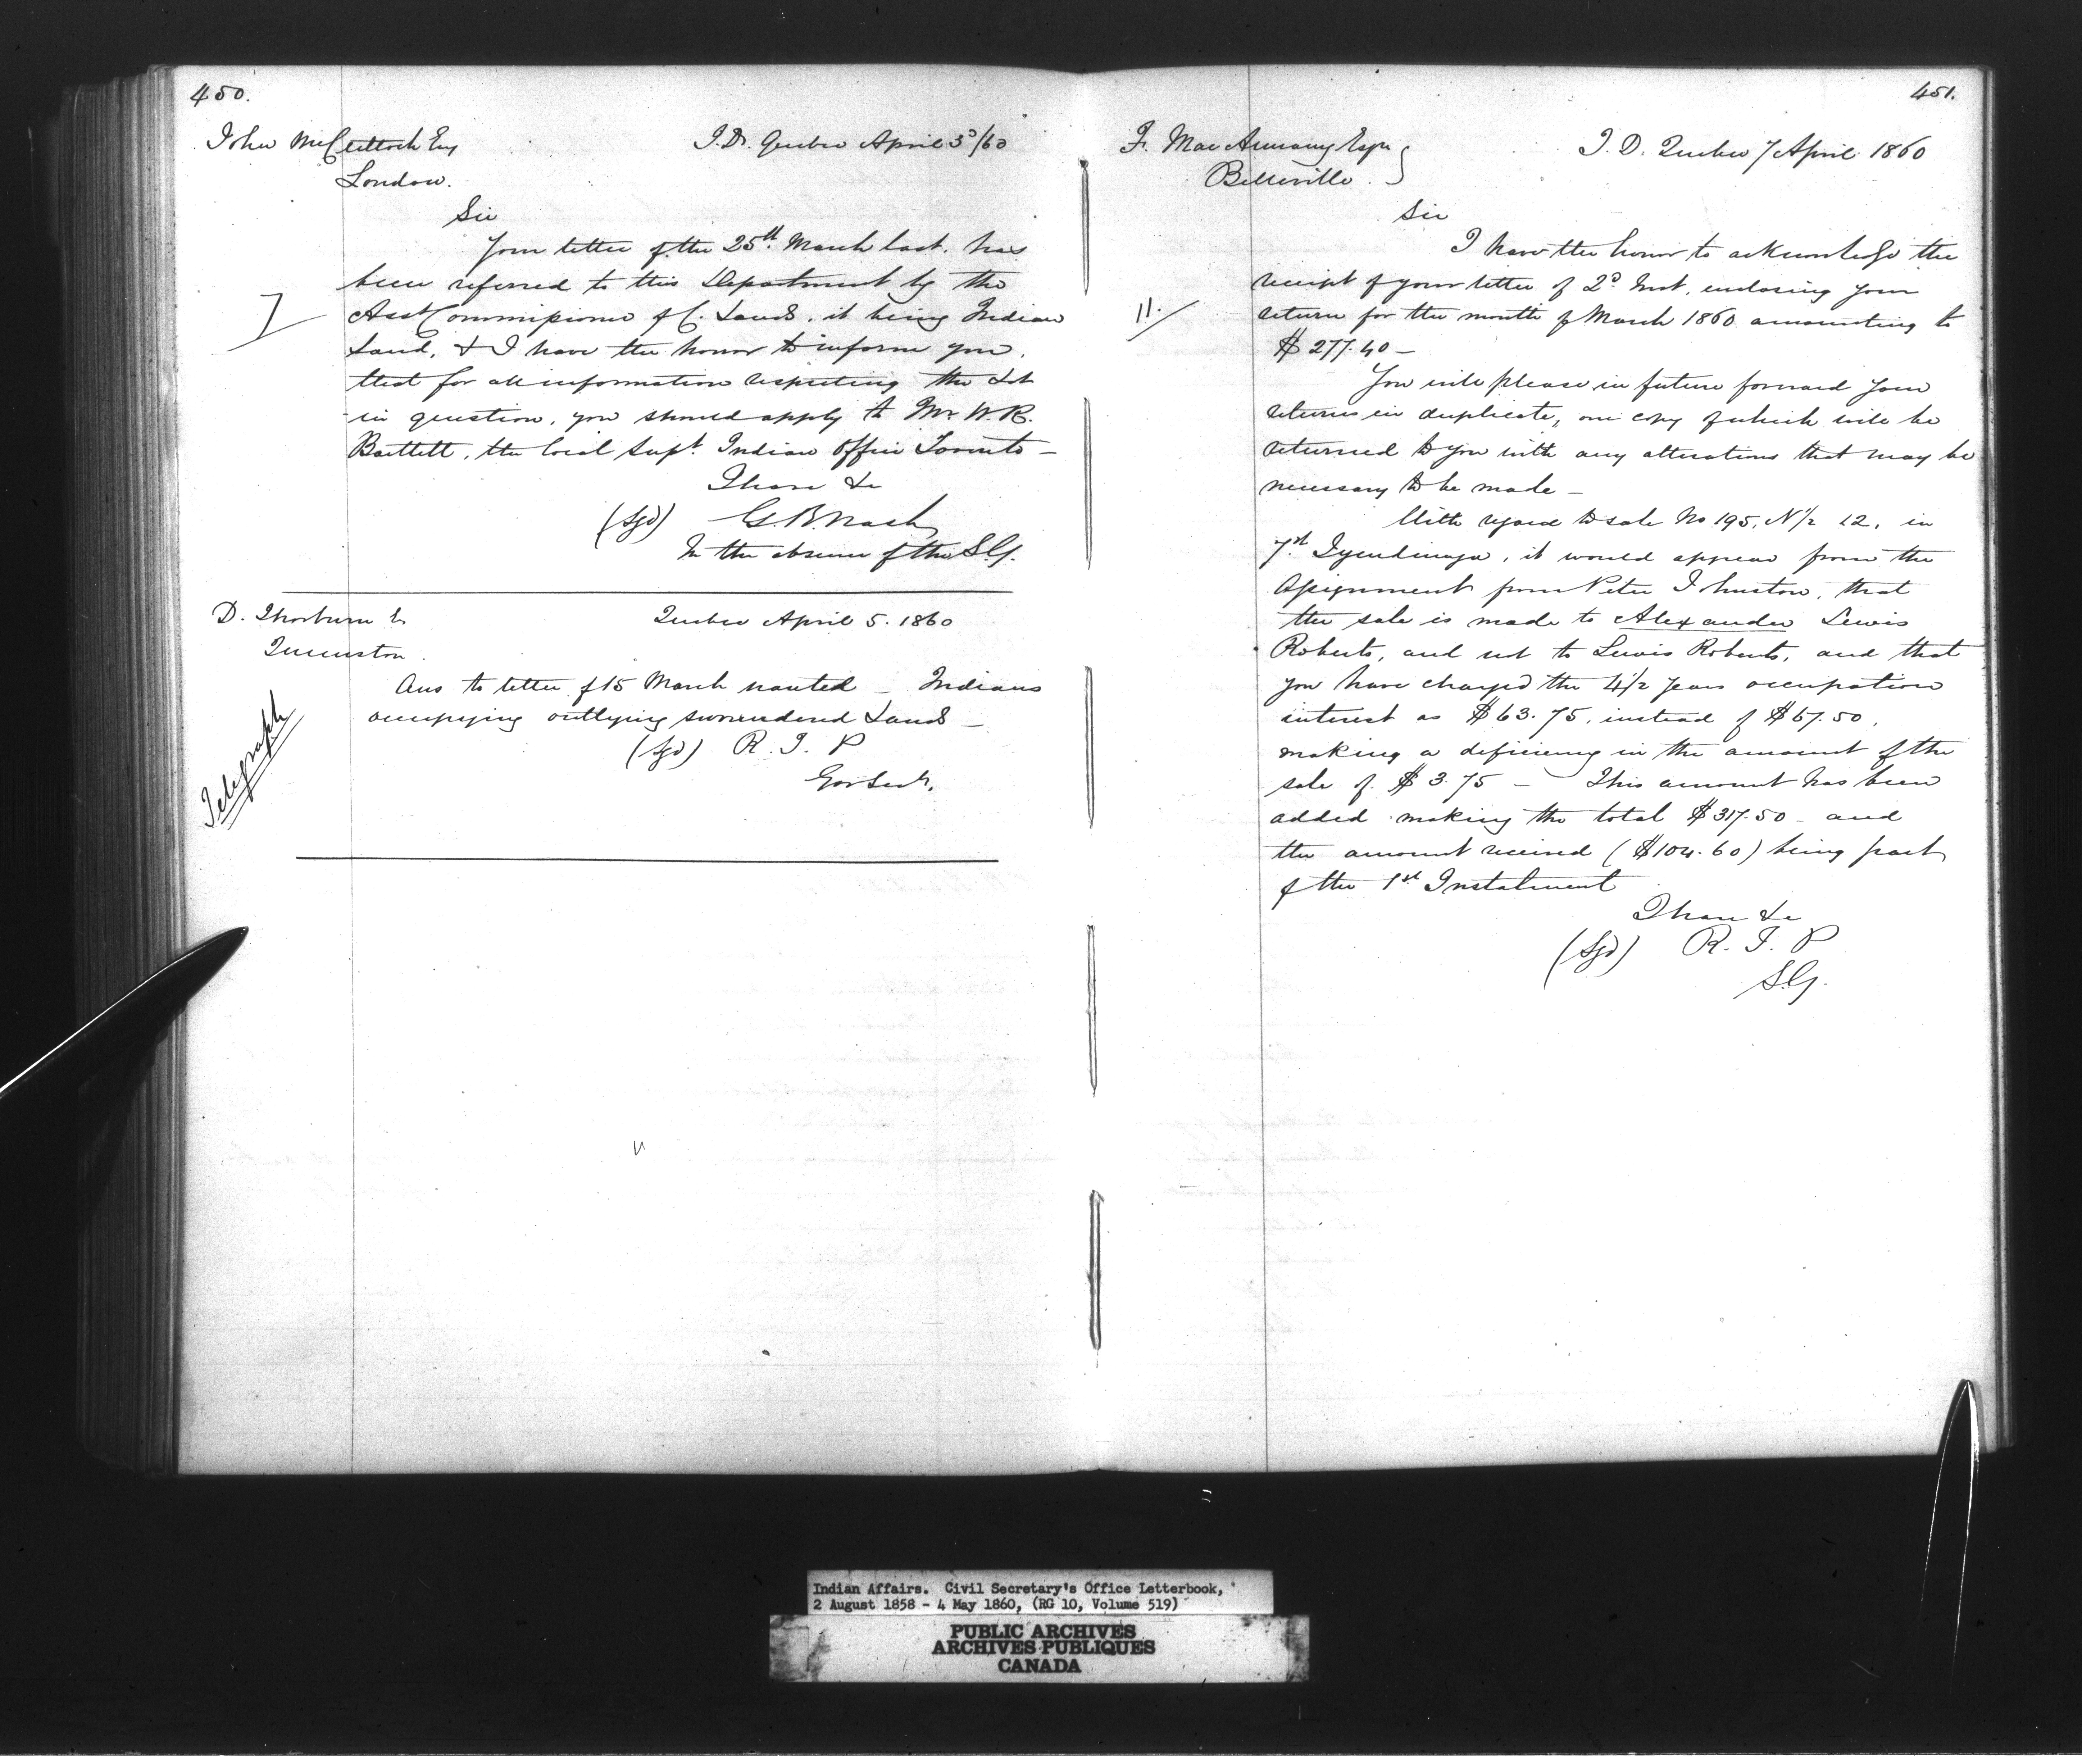 450.
John McClettock Esq
I.D. Quebec April 3d/60
London.
Sir
Your letter of the 25th March last. has
been referred to this Department by the
Asst Commissioner of C. Lands. it being Indian
Land, & I have the honor to inform you,
that for all information respecting the Lot
in question, you should apply to Mr W. R.
Bartlett, the local Supt. Indian Office Toronto —
I have &c
(Sgd) G. B. Nash
In the absence of the S.G.
D. Thorburn E
Quebec April 5. 1860
Queenston.
Telegraph
Ans to letter of 15 March wanted — Indians
occupying outlying surrendered Lands —
(Sgd) R. T. P
Gov Secy.
451.
F. Mac Annany Esqr
Belleville.
I. D. Quebec 7 April 1860
Sir
I have the honor to acknowledge the
receipt of your letter of 2d Inst, enclosing your
11.
return for the month of March 1860 amounting to
$277.40 —
You will please in future forward your
returns in duplicate, one copy of which will be
returned to you with any alterations that may be
necessary to be made —
With regard to sale No 195, N 1/2 12, in
7th Tyendinaga, it would appear from the
Assignment from Peter Johnston, that
the sale is made to Alexander Lewis
Roberts, and not to Lewis Roberts, and that
you have charged the 4 1/2 years occupation
interest as $63.75, instead of $67.50,
making a deficiency in the amount of the
sale of $3.75 — This amount has been
added making the total $317.50 — and
the amount received ($104.60) being part
of the 1st Instalment
I have &c
(Sgd) R. T. P
S.G.
Indian Affairs. Civil Secretary's Office Letterbook,
2 August 1858 - 4 May 1860, (RG 10, Volume 519)
PUBLIC ARCHIVES
ARCHIVES PUBLIQUES
CANADA